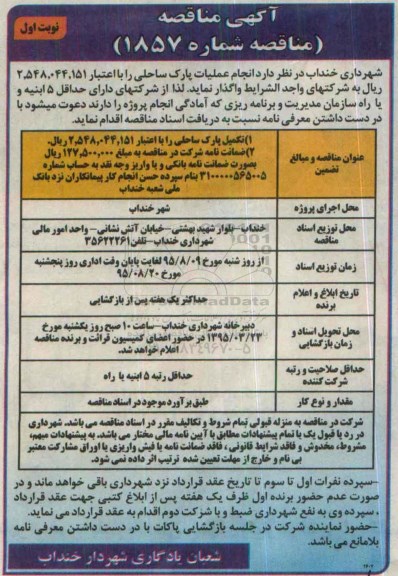 آگهی مناقصه
نوبت اول
(مناقصه شماره ۱۸۵۷)
شهرداری خنداب در نظر دارد انجام عملیات پارک ساحلی را با اعتبار ۲,۵۴۸,۰۴۴,۱۵۱
ریال به شرکتهای واجد الشرایط واگذار نماید. لذا از شرکتهای دارای حداقل ۵ ابنیه و
یا راه سازمان مدیریت و برنامه ریزی که آمادگی انجام پروژه را دارند دعوت میشود با
در دست داشتن معرفی نامه نسبت به دریافت اسناد مناقصه اقدام نماید.
عنوان مناقصه و مبالغ تضمین
۱)تکمیل پارک ساحلی را با اعتبار ۲,۵۴۸,۰۴۴,۱۵۱ ریال.
۲)ضمانت نامه شرکت در مناقصه به مبلغ ۱۲۷,۵۰۰,۰۰۰ ریال
بصورت ضمانت نامه بانکی و یا واریز وجه نقد به حساب شماره
۳۱۰۰۰۰۰۵۶۵۰۰۵ بنام سپرده حسن انجام کار پیمانکاران نزد بانک
ملی شعبه خنداب
محل اجرای پروژه
شهر خنداب
محل توزیع اسناد مناقصه
خنداب-بلوار شهید بهشتی-خیابان آتش نشانی- واحد امور مالی
شهرداری خنداب-تلفن ۳۵۶۲۲۲۶۱
زمان توزیع اسناد
از روز شنبه مورخ ۹۵/۸/۰۹ لغایت پایان وقت اداری روز پنجشنبه
مورخ ۹۵/۰۸/۲۰
تاریخ ابلاغ و اعلام برنده
حداکثر یک هفته پس از بازگشایی
محل تحویل اسناد و زمان بازگشایی
دبیرخانه شهرداری خنداب-ساعت ۱۰ صبح روز یکشنبه مورخ
۱۳۹۵/۰۳/۲۳ در حضور اعضای کمیسیون قرائت و برنده مناقصه
اعلام خواهد شد.
حداقل صلاحیت و رتبه شرکت کننده
حداقل رتبه ۵ ابنیه یا راه
مقدار و نوع کار
طبق برآورد موجود در اسناد مناقصه
شرکت در مناقصه به منزله قبولی تمام شروط و تکالیف مقرر در اسناد مناقصه می باشد. شهرداری
در رد یا قبول یک یا تمام پیشنهادات مطابق با آیین نامه مالی مختار می باشد. به پیشنهادات مبهم،
مشروط، مخدوش و فاقد شرایط قانونی، فاقد ضمانت نامه یا فیش واریزی یا اوراق مشارکت معتبر
بی نام و خارج از مهلت تعیین شده ترتیب اثر داده نمی شود.
-سپرده نفرات اول تا سوم تا تاریخ عقد قرارداد نزد شهرداری باقی خواهد ماند و در
صورت عدم حضور برنده اول ظرف یک هفته پس از ابلاغ کتبی جهت عقد قرارداد
، سپرده وی به نفع شهرداری ضبط و با شرکت دوم اقدام به عقد قرارداد می نماید.
-حضور نماینده شرکت در جلسه بازگشایی پاکات با در دست داشتن معرفی نامه
بلامانع می باشد.
شعبان یادگاری شهردار خنداب